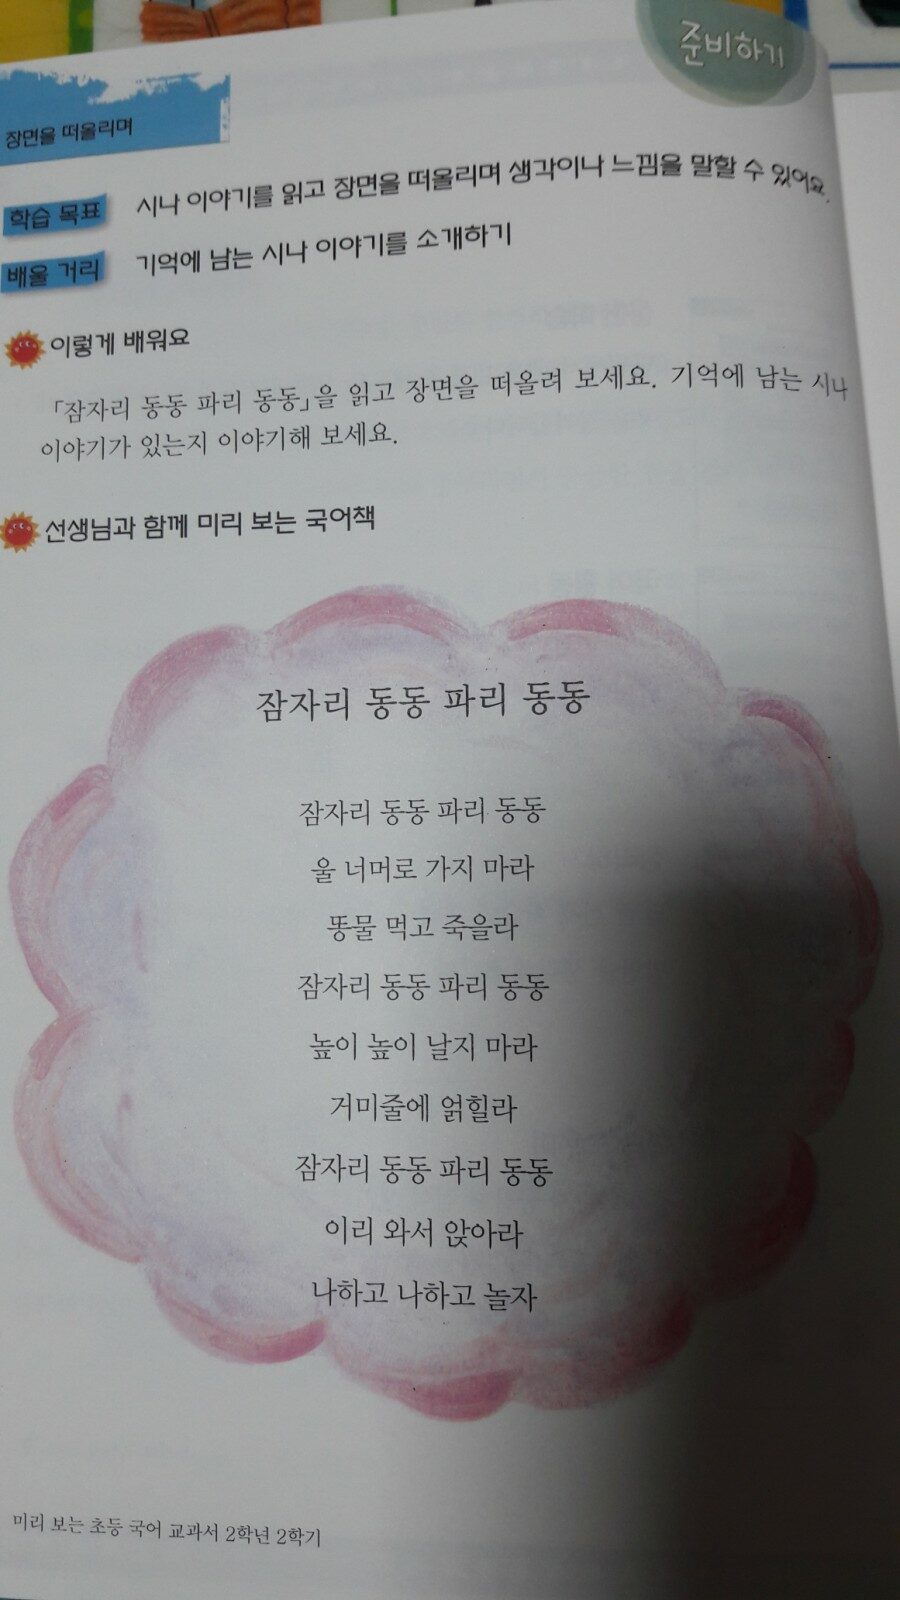 준비하기
장면을 떠올리며
학습 목표 시나 이야기를 읽고 장면을 떠올리며 생각이나 느낌을 말할 수 있어요.
배울 거리 기억에 남는 시나 이야기를 소개하기
이렇게 배워요
「잠자리 동동 파리 동동」을 읽고 장면을 떠올려 보세요. 기억에 남는 시나
이야기가 있는지 이야기해 보세요.
선생님과 함께 미리 보는 국어책
잠자리 동동 파리 동동
잠자리 동동 파리 동동
울 너머로 가지 마라
똥물 먹고 죽을라
잠자리 동동 파리 동동
높이 높이 날지 마라
거미줄에 얽힐라
잠자리 동동 파리 동동
이리 와서 앉아라
나하고 나하고 놀자
미리 보는 초등 국어 교과서 2학년 2학기